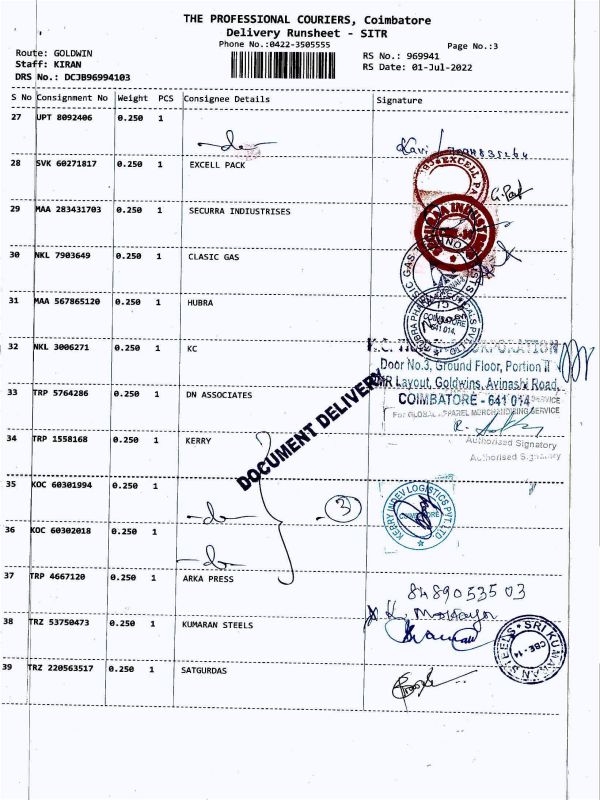 THE PROFESSIONAL COURIERS, Coimbatore
Delivery Runsheet - SITR
Phone No.:0422-3505555
Page No.:3
Route: GOLDWIN
RS No.: 969941
Staff: KIRAN
RS Date: 01-Jul-2022
DRS No.: DCJB96994103
S No Consignment No Weight PCS Consignee Details Signature
27 UPT 8092406 0.250 1 -do-
28 SVK 60271817 0.250 1 EXCELL PACK
29 MAA 283431703 0.250 1 SECURRA INDIUSTRISES
30 NKL 7903649 0.250 1 CLASIC GAS
31 MAA 567865120 0.250 1 HUBRA
32 NKL 3006271 0.250 1 KC
Door No.3, Ground Floor, Portion II
Layout, Goldwins, Avinashi Road,
33 TRP 5764286 0.250 1 DN ASSOCIATES
COIMBATORE - 641 014
For GLOBAL APPAREL MERCHANDISING SERVICE
DOCUMENT DELIVERY
34 TRP 1558168 0.250 1 KERRY
Authorised Signatory
Authorised Signatory
35 KOC 60301994 0.250 1 -do- 3
KERRY INDEV LOGISTICS PVT. LTD.
COIMBATORE
36 KOC 60302018 0.250 1 -do-
37 TRP 4667120 0.250 1 ARKA PRESS
84890535 03
38 TRZ 53750473 0.250 1 KUMARAN STEELS
SRI KUMARAN STEELS
CBE-14
39 TRZ 220563517 0.250 1 SATGURDAS